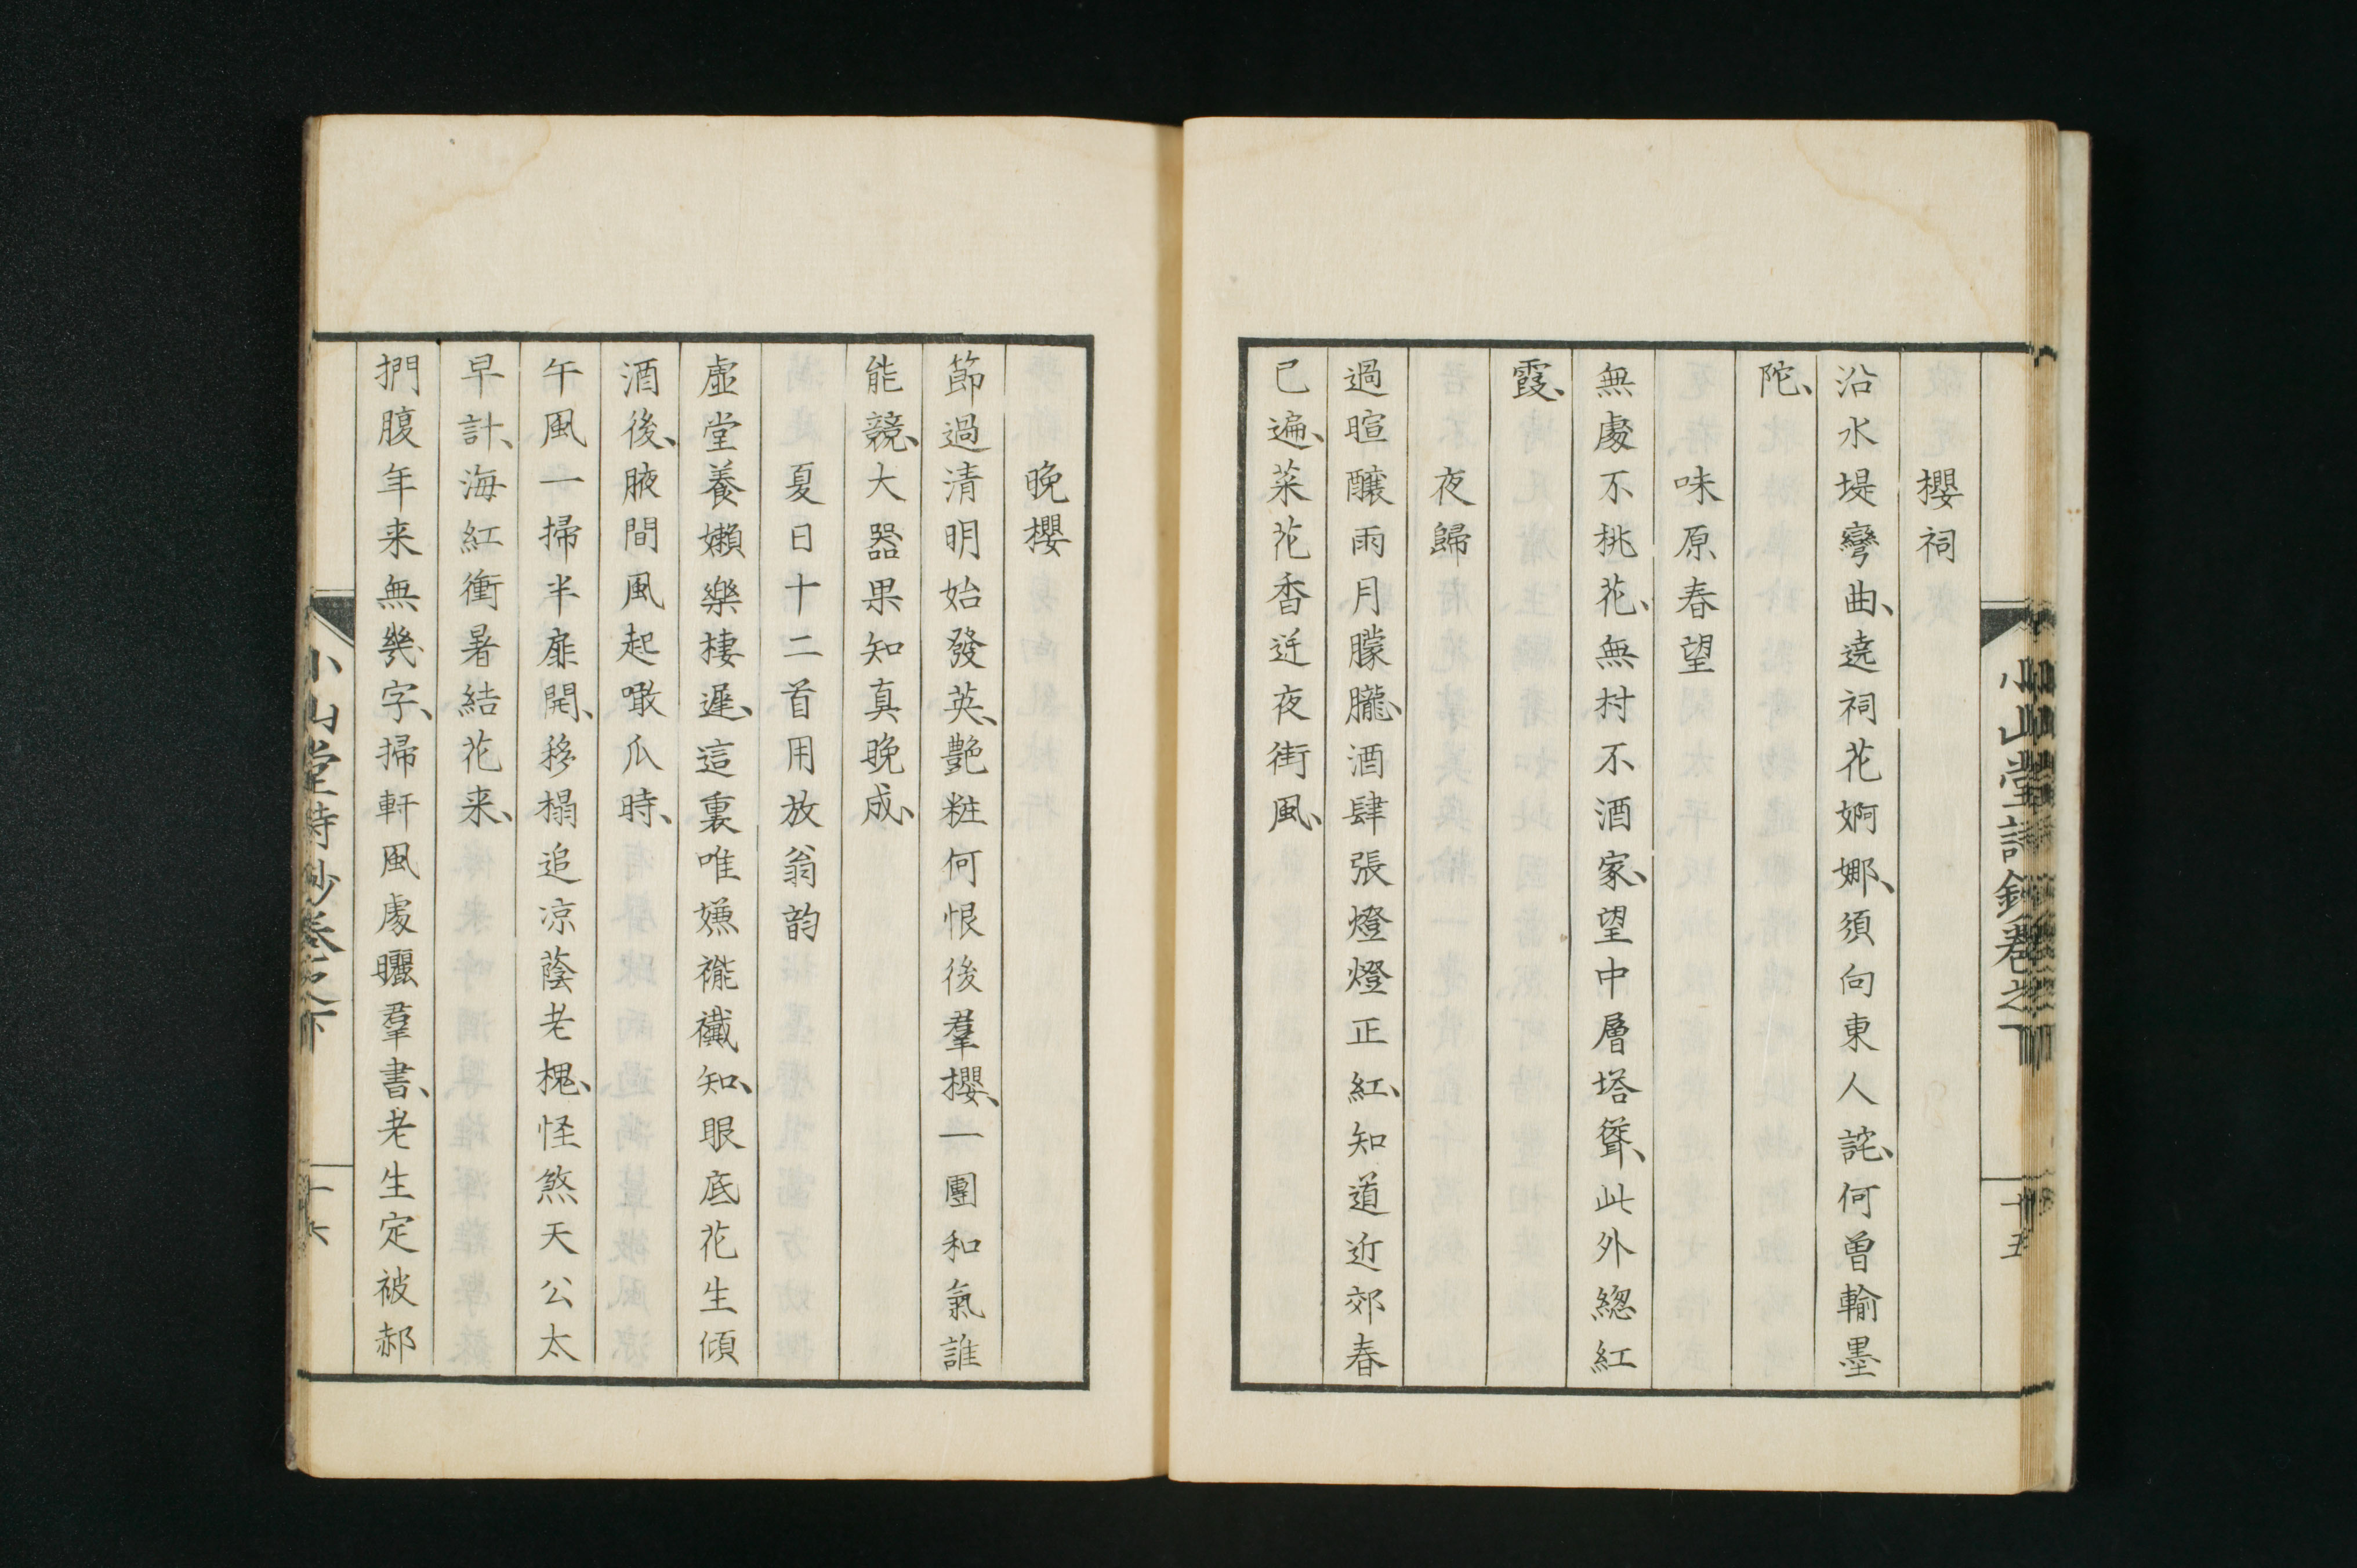 小山堂詩鈔卷之下
十五
櫻祠
沿水堤彎曲、遶祠花婀娜、須向東人詫、何曽輸墨
陀、
味原春望
無處不桃花、無村不酒家、望中層塔聳、此外總紅
霞、
夜歸
過暄釀雨月朦朧、酒肆張燈燈正紅、知道近郊春
已遍、菜花香送夜街風、
晚櫻
節過清明始發英、艷粧何恨後羣櫻、一團和氣誰
能競、大器果知真晚成、
夏日十二首用放翁韵
虛堂養嬾樂棲遲、這裏唯嫌襹襶知、眼底花生傾
酒後、腋間風起噉瓜時、
午風一掃半扉開、移榻追凉蔭老槐、怪煞天公太
早計、海紅衝暑結花来、
捫腹年来無幾字、掃軒風處曬羣書、老生定被郝
小山堂詩鈔卷之下
十六